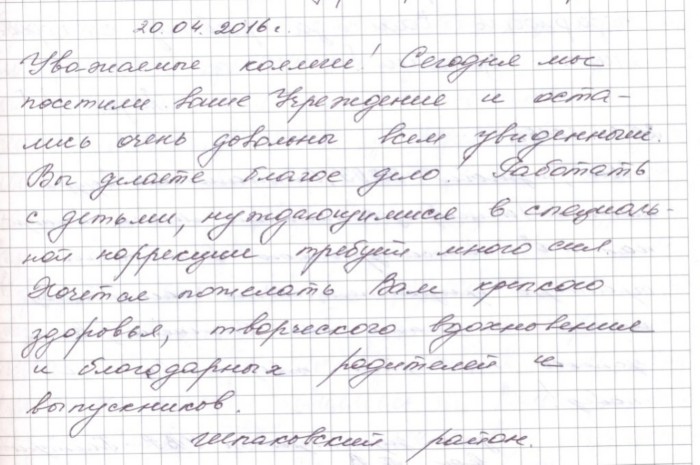 20.04.2016г.
Уважаемые коллеги! Сегодня мы
посетили ваше Учреждение и оста-
лись очень довольны всем увиденным.
Вы делаете благое дело! Работать
с детьми, нуждающимися в специаль-
ной коррекции требует много сил.
Хочется пожелать Вам крепкого
здоровья, творческого вдохновения
и благодарных родителей и
выпускников.
Шпаковский район.